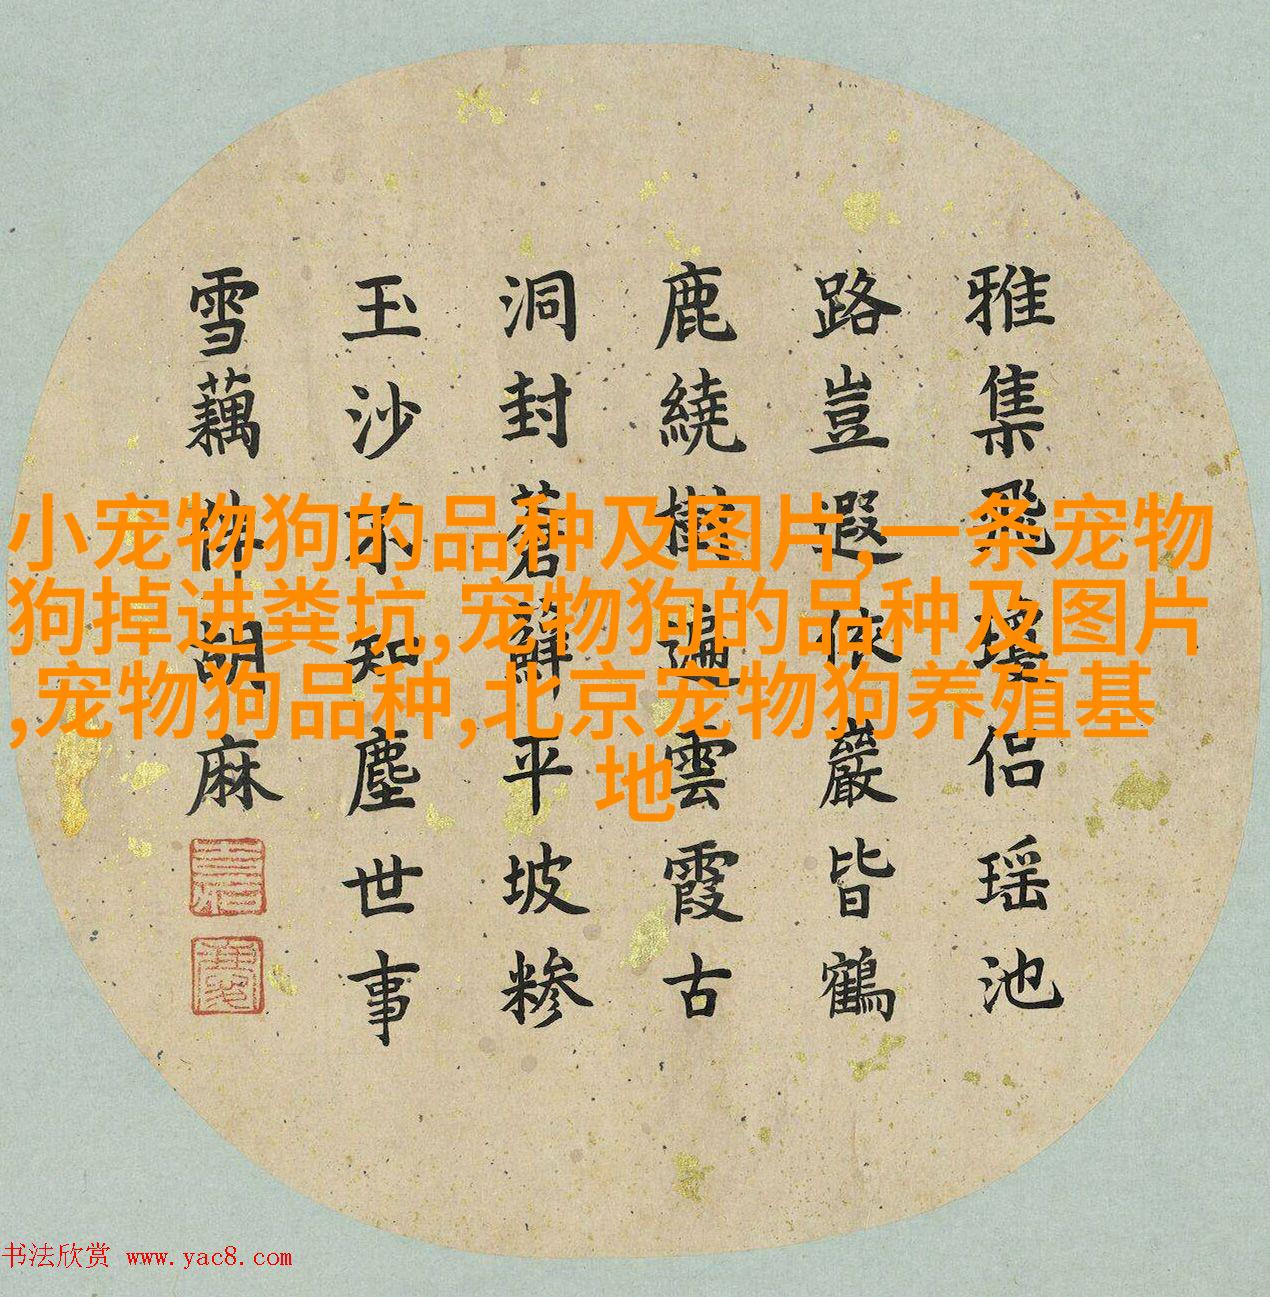 雅集飛瓊侣瑶池
路豈遐依巖皆鶴
鹿繞樹遍雲霞古
洞封蒼蘚平坡糝
玉沙不知塵世事
雪藕胡麻
小宠物狗的品种及图片,一条宠物
狗掉进粪坑,宠物狗的品种及图片
,宠物狗品种,北京宠物狗养殖基
地
书法欣赏 www.yac8.com